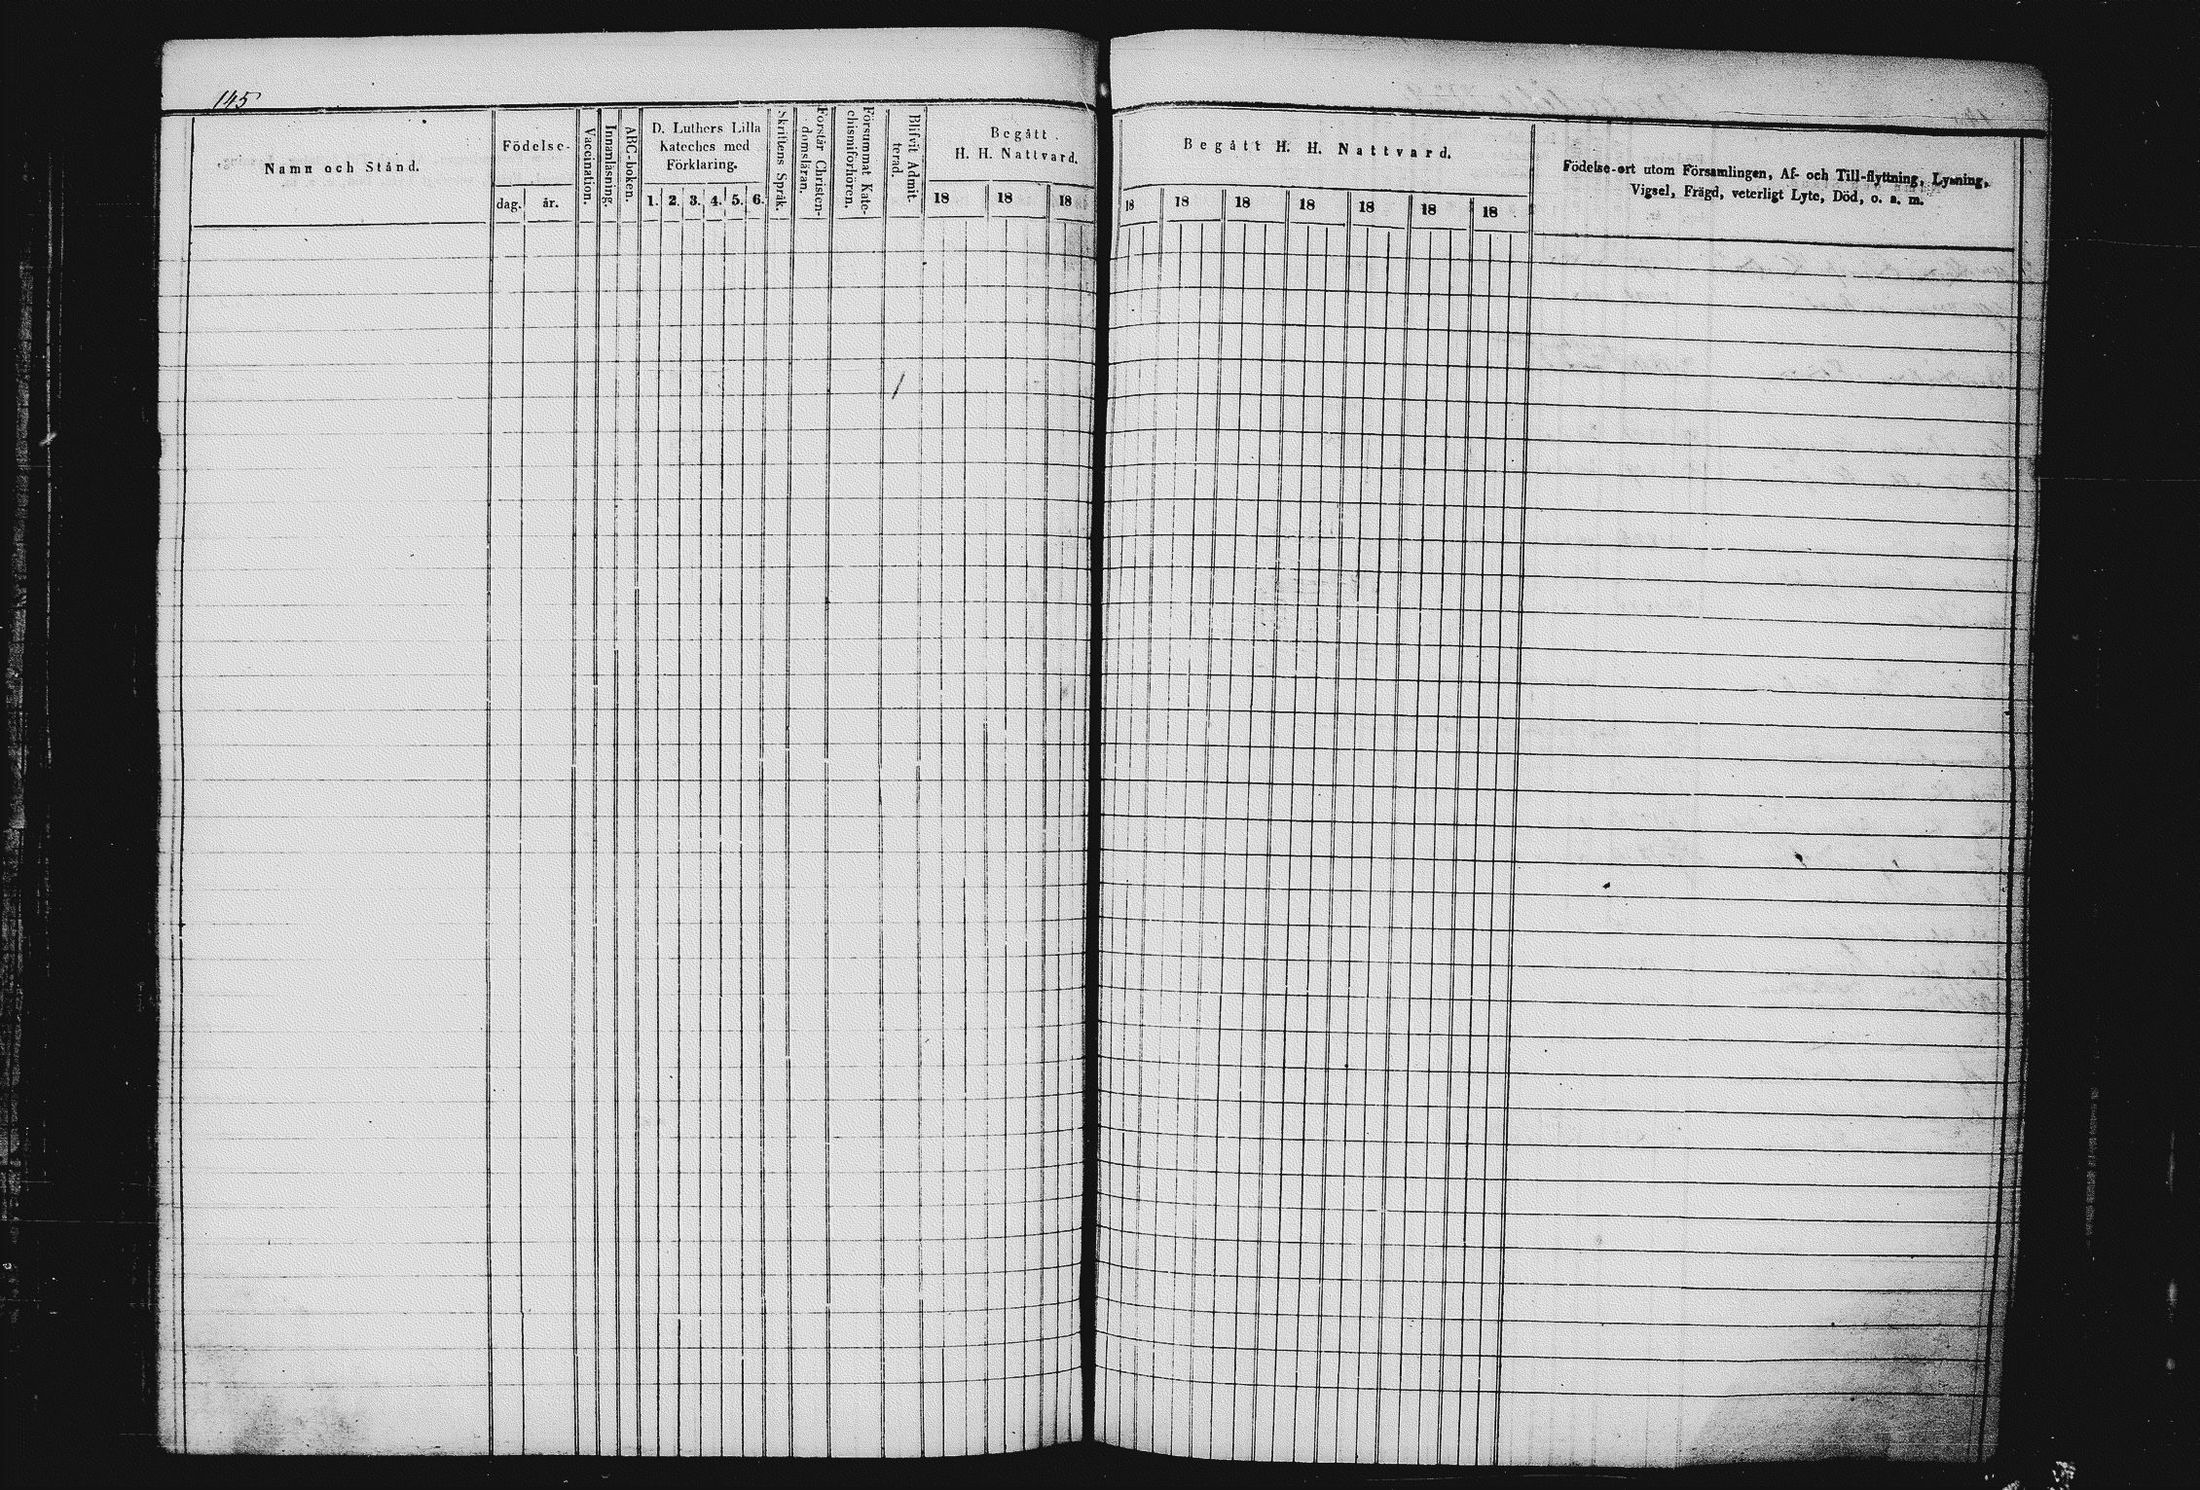 145
Namn och Stånd.
Födelse-
dag.
år.
Vaccination.
Innanläsning.
ABC-boken.
D. Luthers Lilla
Kateches med
Förklaring.
1. 2. 3. 4. 5. 6.
Skriftens Språk.
Förstår Christen-
domsläran.
Försummat Kate-
chismiförhören.
Blifvit Admit-
terad.
Begått
H. H. Nattvard.
18 18 18
Begått H. H. Nattvard.
18 18 18 18 18 18 18
Födelse-ort utom Församlingen, Af- och Till-flyttning, Lysning,
Vigsel, Frägd, veterligt Lyte, Död, o. s. m.